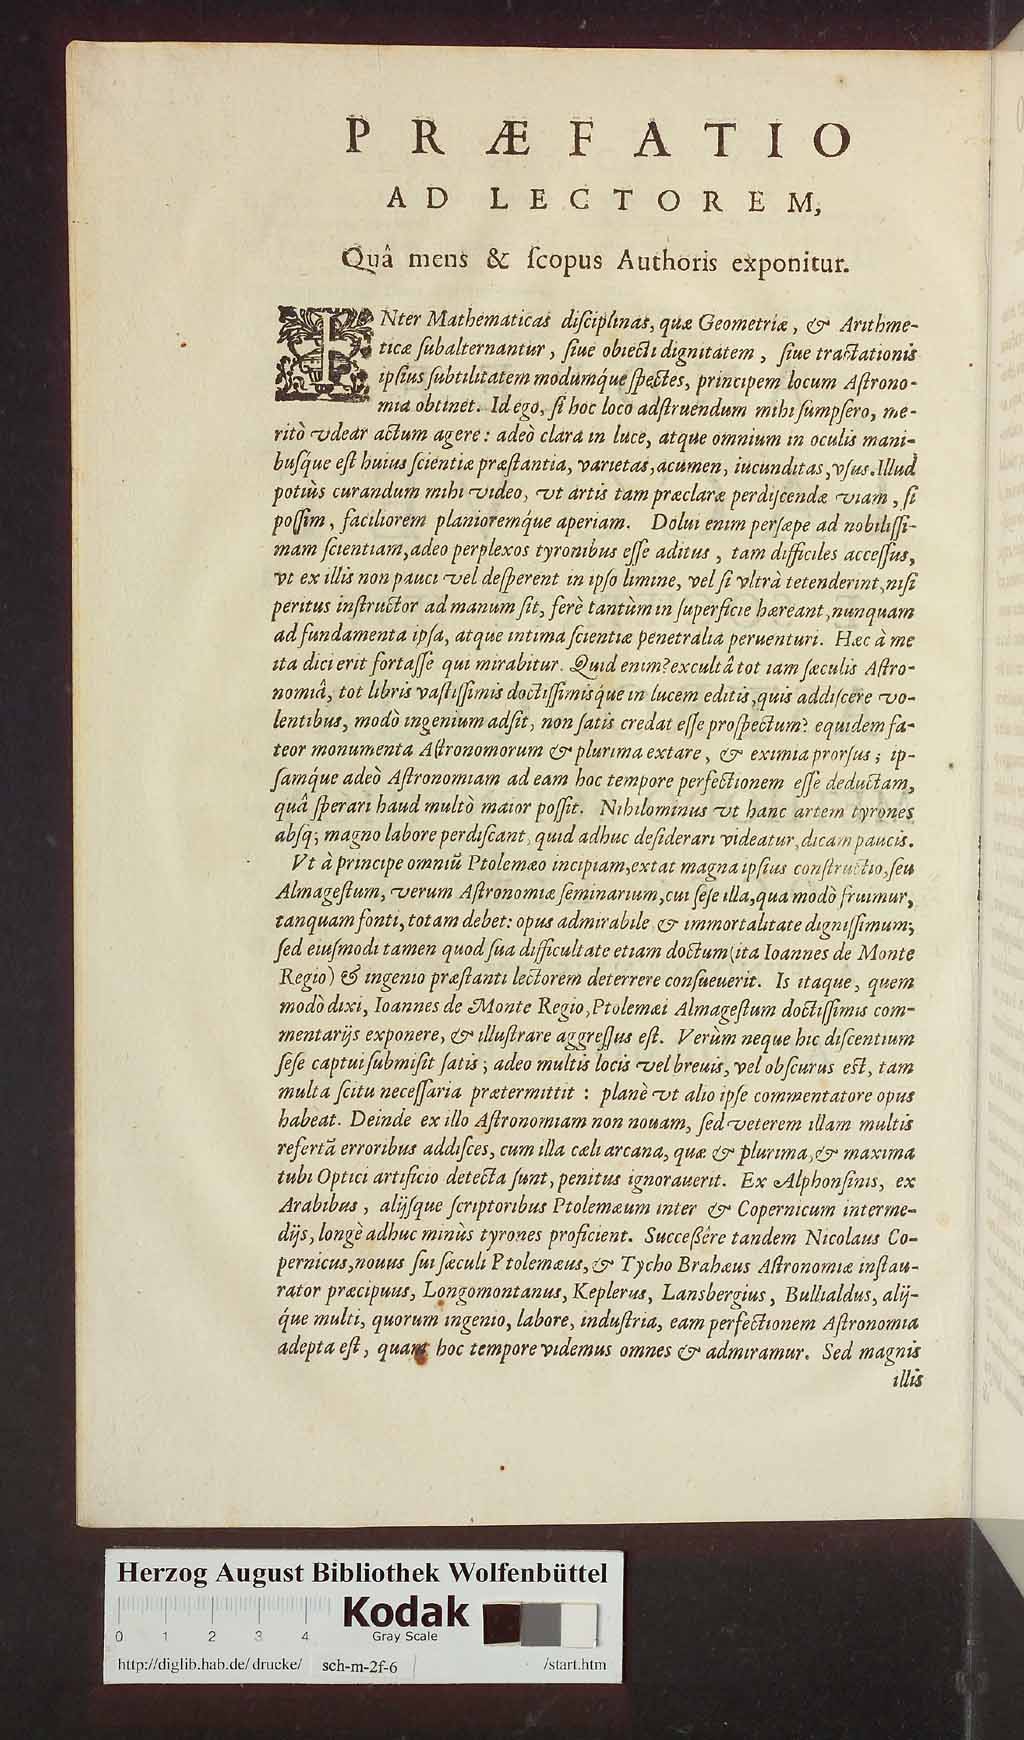 PRÆFATIO
AD LECTOREM,
Quâ mens & ſcopus Authoris exponitur.
INter Mathematicas diſciplinas, quæ Geometriæ, & Arithme-
ticæ ſubalternantur, ſiue obiecti dignitatem, ſiue tractationis
ipſius ſubtilitatem modumq́ue ſpectes, principem locum Aſtrono-
mia obtinet. Id ego, ſi hoc loco adſtruendum mihi ſumpſero, me-
ritò videar actum agere: adeò clara in luce, atque omnium in oculis mani-
buſq́ue eſt huius ſcientiæ præſtantia, varietas, acumen, iucunditas, vſus. Illud
potiùs curandum mihi video, vt artis tam præclaræ perdiſcendæ viam, ſi
poſſim, faciliorem planioremq́ue aperiam. Dolui enim perſæpe ad nobiliſſi-
mam ſcientiam, adeo perplexos tyronibus eſſe aditus, tam difficiles acceſſus,
vt ex illis non pauci vel deſperent in ipſo limine, vel ſi vltrà tetenderint, niſi
peritus inſtructor ad manum ſit, ferè tantùm in ſuperficie hæreant, nunquam
ad fundamenta ipſa, atque intima ſcientiæ penetralia peruenturi. Hæc à me
ita dici erit fortaſſe qui mirabitur. Quid enim? excultâ tot iam ſæculis Aſtro-
nomiâ, tot libris vaſtiſſimis doctiſſimisq́ue in lucem editis, quis addiſcere vo-
lentibus, modò ingenium adſit, non ſatis credat eſſe proſpectum? equidem fa-
teor monumenta Aſtronomorum & plurima extare, & eximia prorſus; ip-
ſamq́ue adeò Aſtronomiam ad eam hoc tempore perfectionem eſſe deductam,
quâ ſperari haud multò maior poſſit. Nihilominus vt hanc artem tyrones
abſq; magno labore perdiſcant, quid adhuc deſiderari videatur, dicam paucis.
Vt à principe omniũ Ptolemæo incipiam, extat magna ipſius conſtructio, ſeu
Almageſtum, verum Aſtronomiæ ſeminarium, cui ſeſe illa, qua modò fruimur,
tanquam fonti, totam debet: opus admirabile & immortalitate digniſſimum;
ſed eiuſmodi tamen quod ſua difficultate etiam doctum (ita Ioannes de Monte
Regio) & ingenio præſtanti lectorem deterrere conſueuerit. Is itaque, quem
modò dixi, Ioannes de Monte Regio, Ptolemæi Almageſtum doctiſſimis com-
mentarijs exponere, & illuſtrare aggreſſus eſt. Verùm neque hic diſcentium
ſeſe captui ſubmiſit ſatis; adeo multis locis vel breuis, vel obſcurus eſt, tam
multa ſcitu neceſſaria prætermittit: planè vt alio ipſe commentatore opus
habeat. Deinde ex illo Aſtronomiam non nouam, ſed veterem illam multis
refertã erroribus addiſces, cum illa cæli arcana, quæ & plurima, & maxima
tubi Optici artificio detecta ſunt, penitus ignorauerit. Ex Alphonſinis, ex
Arabibus, alijſque ſcriptoribus Ptolemæum inter & Copernicum interme-
dijs, longè adhuc minùs tyrones proficient. Succeßêre tandem Nicolaus Co-
pernicus, nouus ſui ſæculi Ptolemæus, & Tycho Brahæus Aſtronomiæ inſtau-
rator præcipuus, Longomontanus, Keplerus, Lansbergius, Bullialdus, alij-
q́ue multi, quorum ingenio, labore, induſtria, eam perfectionem Aſtronomia
adepta eſt, quam hoc tempore videmus omnes & admiramur. Sed magnis
illis
Herzog August Bibliothek Wolfenbüttel
0 1 2 3 4
Kodak
Gray Scale
http://diglib.hab.de/drucke/ sch-m-2f-6 /start.htm